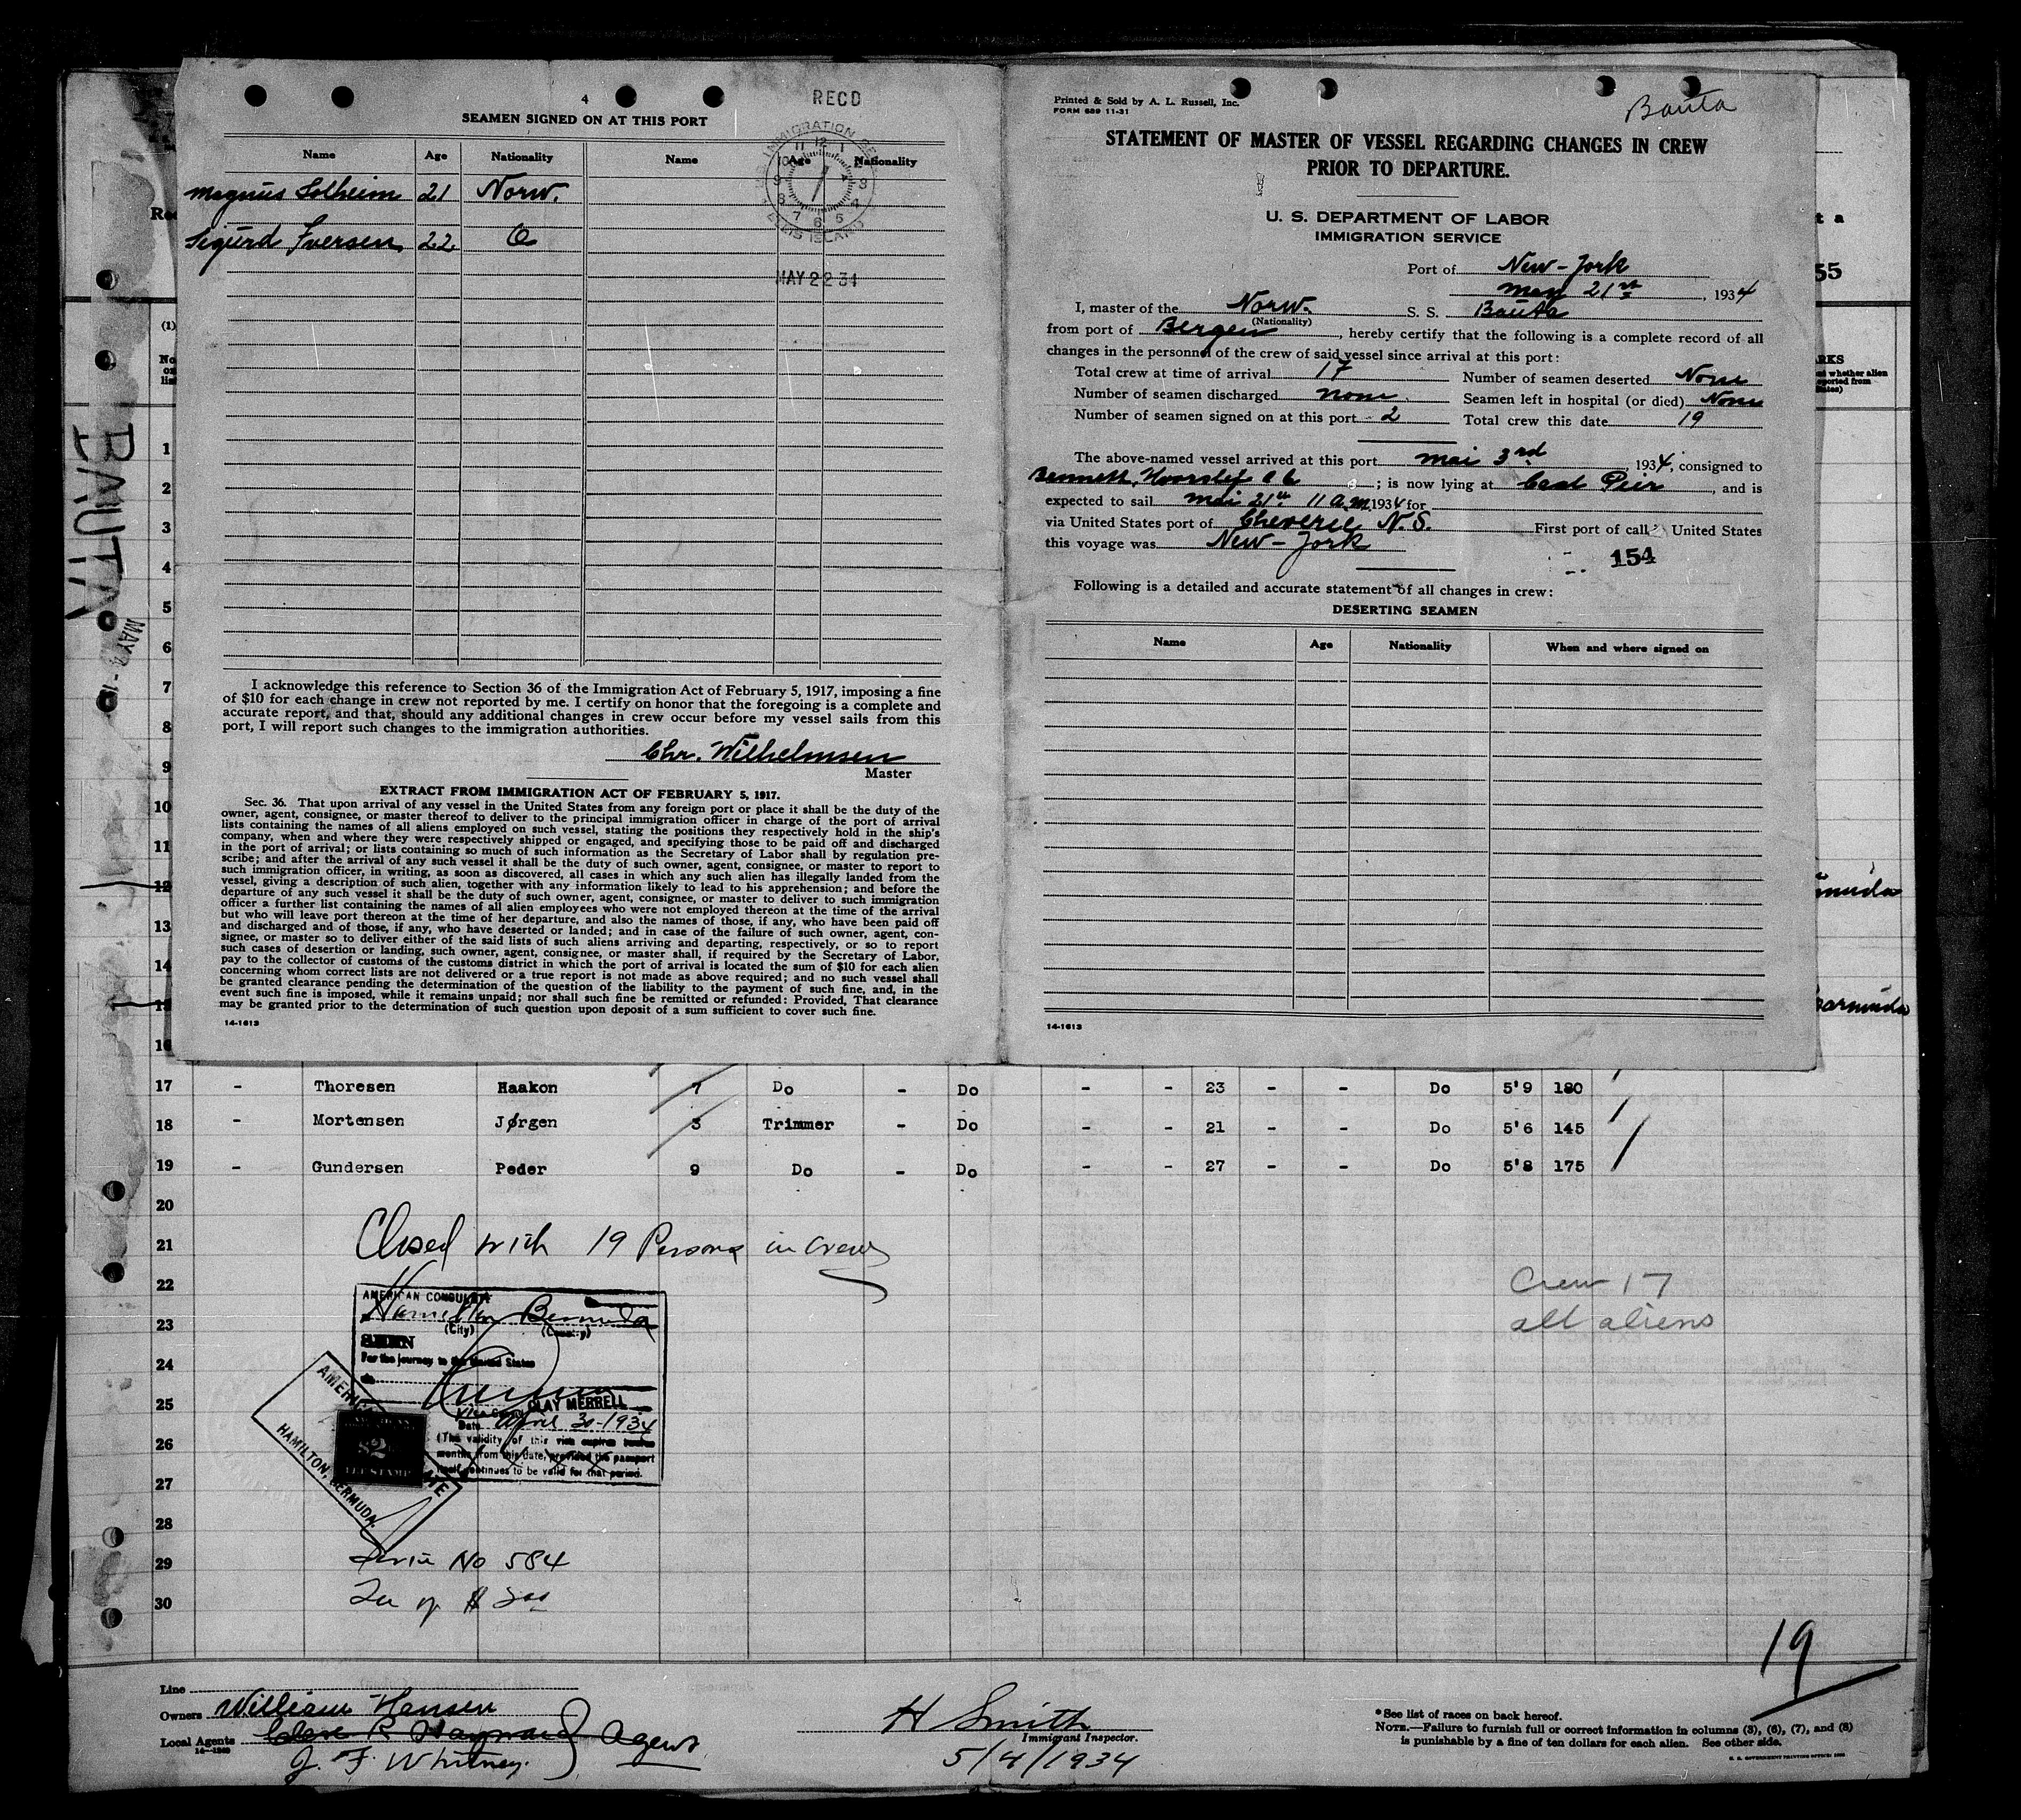 4
RECD
SEAMEN SIGNED ON AT THIS PORT
IMMIGRATION
ELLIS ISLAND
MAY 22 34
Name Age Nationality Name Age Nationality
Magnus Solheim 21 Norw.
Sigurd Iversen 22
I acknowledge this reference to Section 36 of the Immigration Act of February 5, 1917, imposing a fine
of $10 for each change in crew not reported by me. I certify on honor that the foregoing is a complete and
accurate report, and that, should any additional changes in crew occur before my vessel sails from this
port, I will report such changes to the immigration authorities.
Chr. Wilhelmsen
Master
EXTRACT FROM IMMIGRATION ACT OF FEBRUARY 5, 1917.
Sec. 36. That upon arrival of any vessel in the United States from any foreign port or place it shall be the duty of the
owner, agent, consignee, or master thereof to deliver to the principal immigration officer in charge of the port of arrival
lists containing the names of all aliens employed on such vessel, stating the positions they respectively hold in the ship's
company, when and where they were respectively shipped or engaged, and specifying those to be paid off and discharged
in the port of arrival; or lists containing so much of such information as the Secretary of Labor shall by regulation pre-
scribe; and after the arrival of any such vessel it shall be the duty of such owner, agent, consignee, or master to report to
such immigration officer, in writing, as soon as discovered, all cases in which any such alien has illegally landed from the
vessel, giving a description of such alien, together with any information likely to lead to his apprehension; and before the
departure of any such vessel it shall be the duty of such owner, agent, consignee, or master to deliver to such immigration
officer a further list containing the names of all alien employees who were not employed thereon at the time of the arrival
but who will leave port thereon at the time of her departure, and also the names of those, if any, who have been paid off
and discharged and of those, if any, who have deserted or landed; and in case of the failure of such owner, agent, con-
signee, or master so to deliver either of the said lists of such aliens arriving and departing, respectively, or so to report
such cases of desertion or landing, such owner, agent, consignee, or master shall, if required by the Secretary of Labor,
pay to the collector of customs of the customs district in which the port of arrival is located the sum of $10 for each alien
concerning whom correct lists are not delivered or a true report is not made as above required; and no such vessel shall
be granted clearance pending the determination of the question of the liability to the payment of such fine, and, in the
event such fine is imposed, while it remains unpaid; nor shall such fine be remitted or refunded: Provided, That clearance
may be granted prior to the determination of such question upon deposit of a sum sufficient to cover such fine.
14-1613
Printed & Sold by A. L. Russell, Inc.
FORM 689 11-31
Bauta
STATEMENT OF MASTER OF VESSEL REGARDING CHANGES IN CREW
PRIOR TO DEPARTURE.
U. S. DEPARTMENT OF LABOR
IMMIGRATION SERVICE
Port of New-York
May 21st, 1934
I, master of the Norw. S. S. Bauta
(Nationality)
from port of Bergen, hereby certify that the following is a complete record of all
changes in the personnel of the crew of said vessel since arrival at this port:
Total crew at time of arrival 17 Number of seamen deserted None
Number of seamen discharged none Seamen left in hospital (or died) None
Number of seamen signed on at this port 2 Total crew this date 19
The above-named vessel arrived at this port mai 3rd, 1934, consigned to
Bennett, ; is now lying at Coal Peir, and is
expected to sail mai 21st 11 a.m 1934 for
via United States port of Cheverie N.S. First port of call United States
this voyage was New-York
154
Following is a detailed and accurate statement of all changes in crew:
DESERTING SEAMEN
Name Age Nationality When and where signed on
14-1613
BAUTA
MAY
55
(1)
1
2
3
4
5
6
7
8
9
10
11
12
13
14
15
16
17 - Thoresen Haakon 7 Do - Do - - 23 - - Do 5'9 180
18 - Mortensen Jørgen 3 Trimmer - Do - - 21 - - Do 5'6 145
19 - Gundersen Peder 9 Do - Do - - 27 - - Do 5'8 175
20
21 Closed with 19 Persons in crew
22
23
24
25
26
27
28
29
30
Crew 17
all aliens
AMERICAN CONSULATE
Hamilton Bermuda
(City) (Country)
SEEN
For the journey to the United States
Vice Consul CLAY MERRELL
Date April 30-1934
(The validity of this visa expires twelve
months from this date, provided the passport
itself continues to be valid for that period.
HAMILTON, BERMUDA.
$2
FEE STAMP
No 584
19
Line
Owners William Hansen
Local Agents Agents
J. F. Whitney
H Smith
Immigrant Inspector.
5/4/1934
*See list of races on back hereof.
NOTE.—Failure to furnish full or correct information in columns (3), (6), (7), and (8)
is punishable by a fine of ten dollars for each alien. See other side.